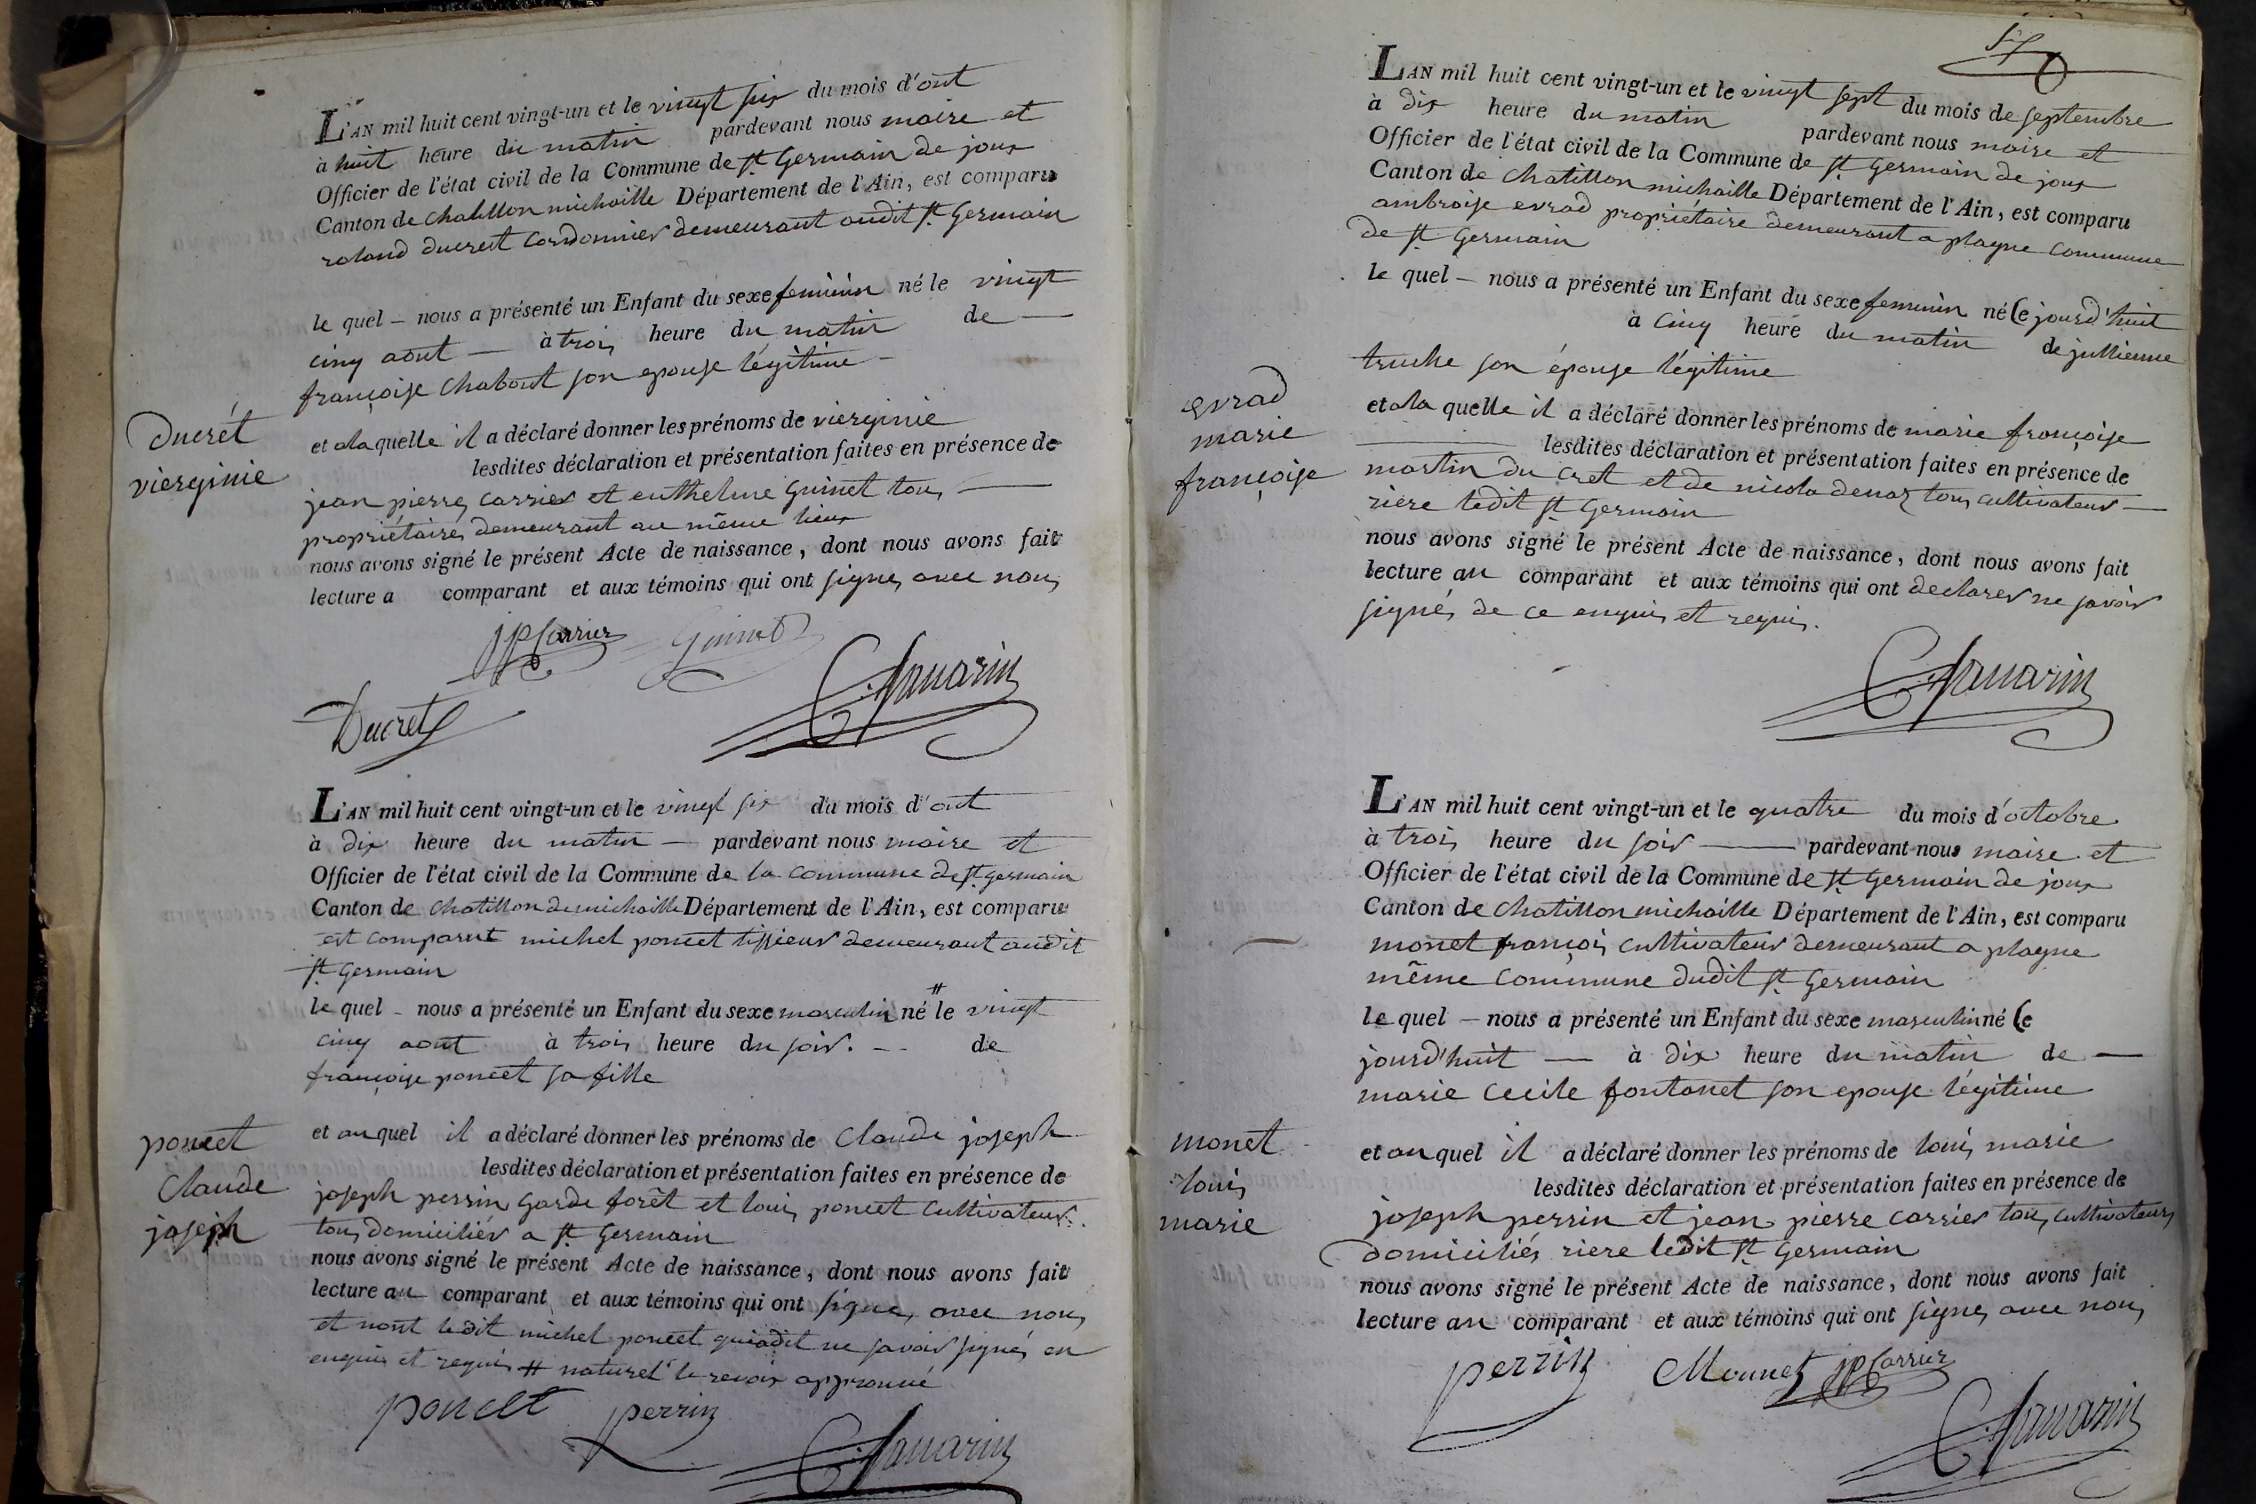 L'AN mil huit cent vingt-un et le vingt six du mois d'out
à huit heure du matin pardevant nous maire et
Officier de l'état civil de la Commune de St Germain de joux
Canton de chatillon michaille Département de l'Ain, est comparu
roland ducret cordonnier demeurant audit St Germain
le quel – nous a présenté un Enfant du sexe feminin né le vingt
cinq aout — à trois heure du matin de —
françoise Chabout son epouse légitime –
ducrét
vierginie
et a la quelle il a déclaré donner les prénoms de vierginie
lesdites déclaration et présentation faites en présence de
jean pierre carrier et enthelme Guinet tous —
propriétaires demeurant au même lieux
nous avons signé le présent Acte de naissance, dont nous avons fait
lecture a comparant et aux témoins qui ont signes avec nous
JP Carrier Guinet
Ducret
L'AN mil huit cent vingt-un et le vingt six du mois d'out
à dix heure du matin — pardevant nous maire et
Officier de l'état civil de la Commune de la commune de St germain
Canton de chatillon de michaille Département de l'Ain, est comparu
est comparut michel poncet tissieur demeurant audit
St Germain
le quel – nous a présenté un Enfant du sexe masculin né # le vingt
cinq aout à trois heure du soir. – de
françoise poncet sa fille
poncet
Claude
joseph
et au quel il a déclaré donner les prénoms de Claude joseph
lesdites déclaration et présentation faites en présence de
joseph perrin garde forêt et louis poncet cultivateur
tous domiciliér a St Germain
nous avons signé le présent Acte de naissance, dont nous avons fait
lecture au comparant et aux témoins qui ont signes avec nous
et nont ledit michel poncet qui a dit ne savoir signés en
enquis et requis # naturel le renvoi approuvé
poncet perrin
L'AN mil huit cent vingt-un et le vingt sept du mois de septembre
à dix heure du matin pardevant nous maire et
Officier de l'état civil de la Commune de St Germain de joux
Canton de chatillon michaille Département de l'Ain, est comparu
ambroise evrad propriétaire demeurant a plagne commune
de St Germain
le quel – nous a présenté un Enfant du sexe feminin né Ce jourd'huit
à cinq heure du matin de jullienne
truche son épouse légitime
evrad
marie
françoise
et a la quelle il a déclaré donner les prénoms de marie françoise
lesdites déclaration et présentation faites en présence de
martin du cret et de nicola denar tous cultivateur —
riere ledit St Germain
nous avons signé le présent Acte de naissance, dont nous avons fait
lecture au comparant et aux témoins qui ont declarer ne savoir
signés de ce enquis et requis.
L'AN mil huit cent vingt-un et le quatre du mois d'octobre
à trois heure du soir — pardevant nous maire et
Officier de l'état civil de la Commune de St Germain de joux
Canton de chatillon michaille Département de l'Ain, est comparu
monet françois cultivateur demeurant a plagne
même commune dudit St Germain
le quel – nous a présenté un Enfant du sexe masculin né Ce
jourd'huit — à dix heure du matin de —
marie cecile fontanet son epouse légitime
monet
louis
marie
et au quel il a déclaré donner les prénoms de louis marie
lesdites déclaration et présentation faites en présence de
joseph perrin et jean pierre carrier tous cultivateurs
domiciliés riere ledit St Germain
nous avons signé le présent Acte de naissance, dont nous avons fait
lecture au comparant et aux témoins qui ont signes avec nous
perrin Monnet JP Carrier